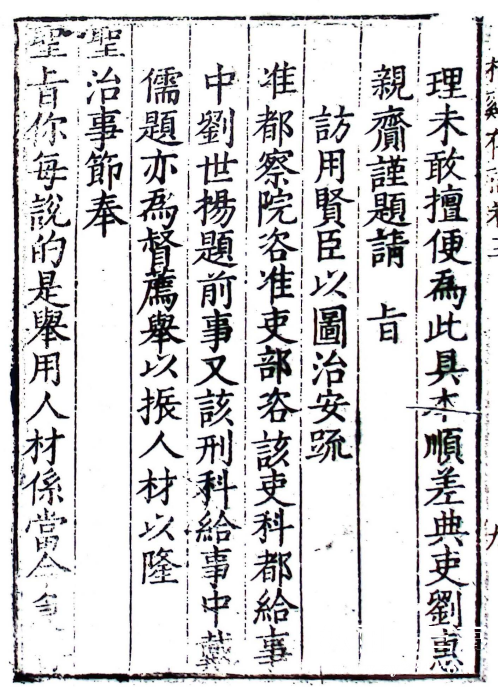 理未敢擅便為此具本順差典吏劉惠
親齎謹題請 旨
訪用賢臣以圖治安疏
准都察院咨准吏部咨該吏科都給事
中劉世揚題前事又該刑科給事中戴
儒題亦為督薦舉以振人材以隆
聖治事節奉
聖旨你每說的是舉用人材係當今